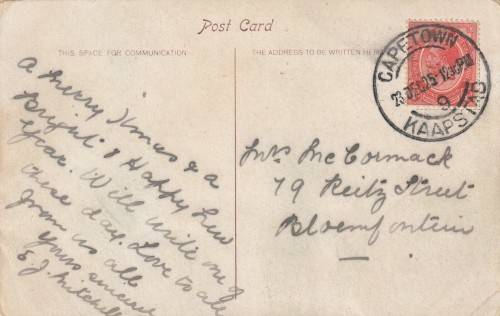 Post Card
THIS SPACE FOR COMMUNICATION
THE ADDRESS TO BE WRITTEN HERE
A Merry Xmas & a
Bright & Happy New
Year. Will write one of
these day. Love to all
from us all
yours sincere
E. J. Mitchell
CAPETOWN
23 DEC 25 12 30 PM
9
KAAPSTAD
Mrs McCormack
79 Reitz Street
Bloemfontein